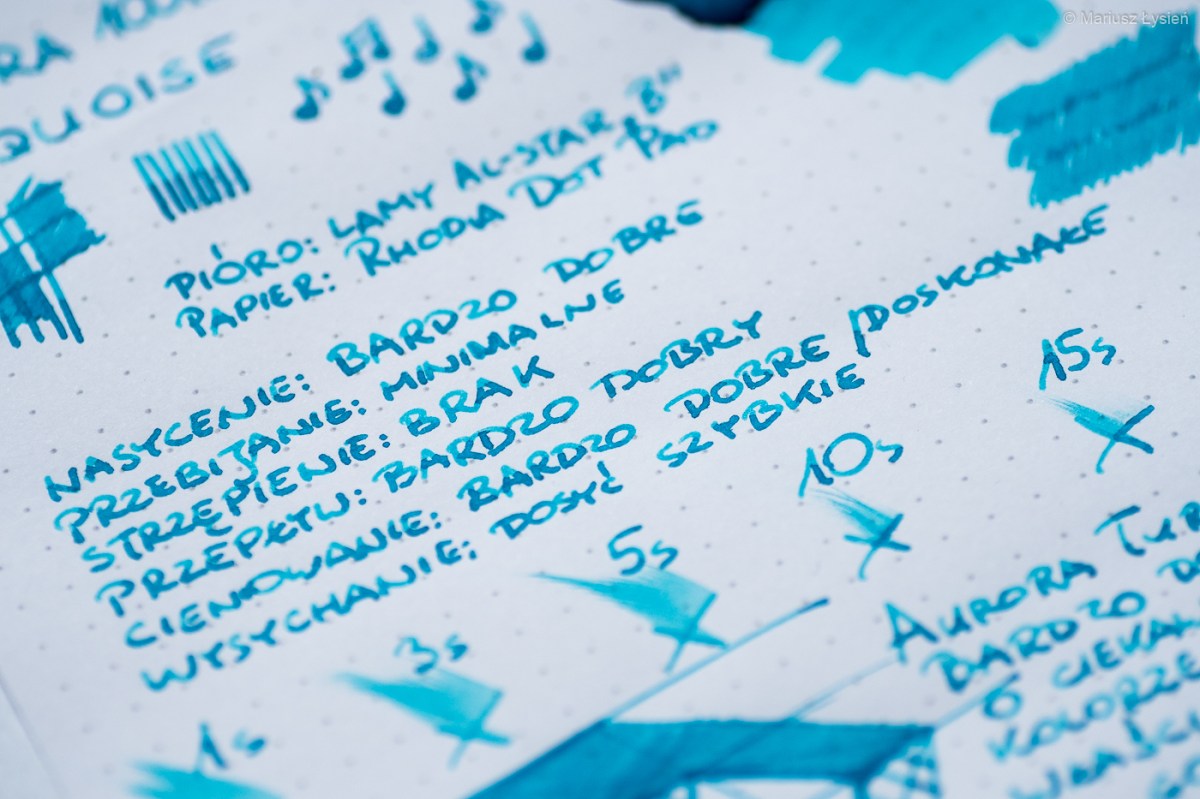 © Mariusz Łysień
QUOISE
PIÓRO: LAMY AL-STAR „B"
PAPIER: RHODIA DOT PAD
NASYCENIE: BARDZO DOBRE
PRZEBIJANIE: MINIMALNE
STRZĘPIENIE: BRAK
PRZEPŁYW: BARDZO DOBRY
CIENIOWANIE: BARDZO DOBRE / DOSKONAŁE
WYSYCHANIE: DOSYĆ SZYBKIE
1s 3s 5s 10s 15s
AURORA TUR
BARDZO
O CIEKAW
KOLORZE